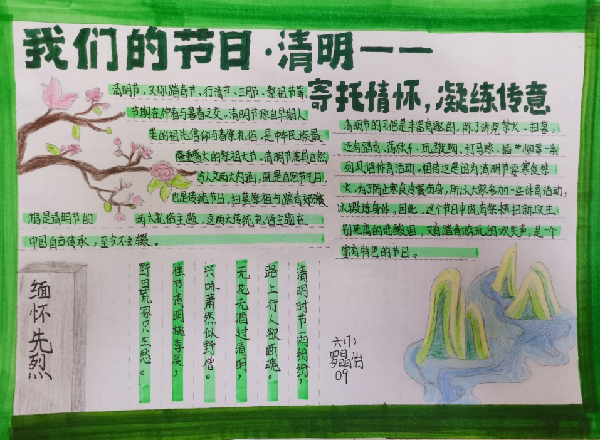 我们的节日·清明——
寄托情怀，凝练传意
清明节，又称踏青节、行清节、三月节、祭祖节等，
节期在仲春与暮春之交。清明节源自早期人
类的祖先信仰与春祭礼俗，是中华民族最
隆重盛大的祭祖大节。清明节兼具自然
与人文两大内涵，既是自然节气点，
也是传统节日，扫墓祭祖与踏青郊游
是清明节的两大礼俗主题，这两大传统礼俗主题在
中国自古传承，至今不辍。
清明节的习俗是丰富有趣的，除了讲究禁火、扫墓，
还有踏青、荡秋千、玩蹴鞠、打马球、插柳等一系
列风俗体育活动。相传这是因为清明节要寒食禁
火，为了防止寒食冷餐伤身，所以大家参加一些体育活动，
以锻炼身体。因此，这个节日中既有祭扫新坟生
别死离的悲酸泪，又有踏青游玩的欢笑声，是一个
富有特色的节日。
缅怀先烈
清明时节雨纷纷，
路上行人欲断魂。
无花无酒过清明，
兴味萧然似野僧。
佳节清明桃李笑，
野田荒冢只生愁。
六(1)
09